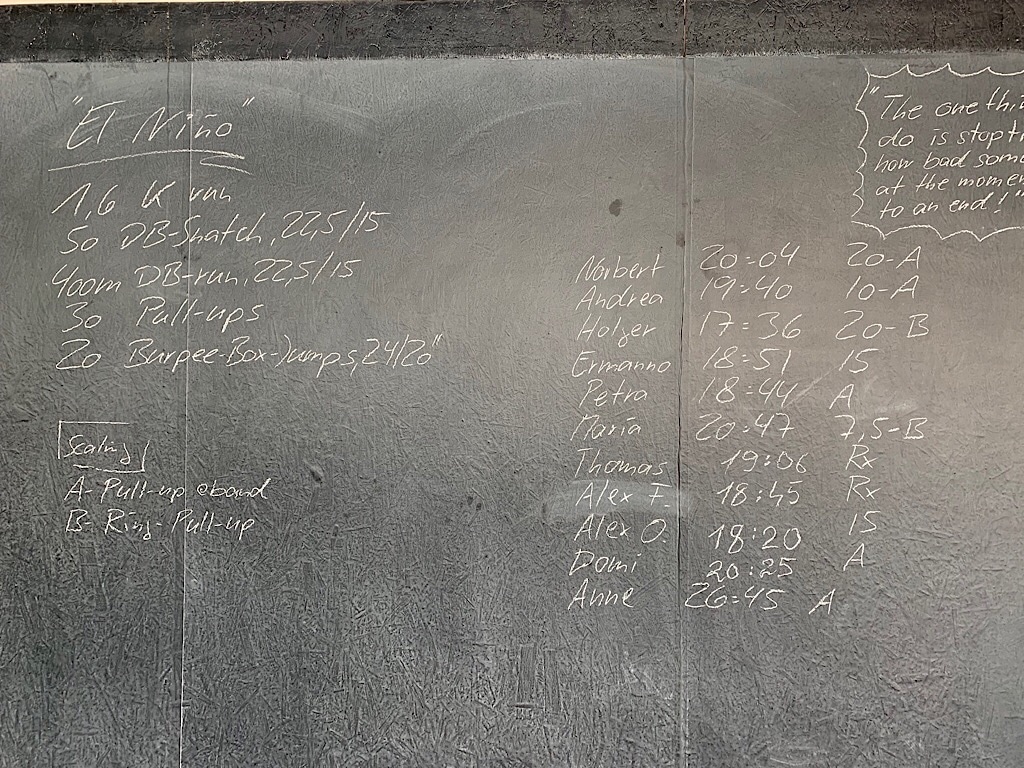 "El Niño"
1,6 K run
50 DB-Snatch, 22,5/15
400m DB-run, 22,5/15
30 Pull-ups
20 Burpee-Box-Jumps, 24/20"
Scaling
A- Pull-up @band
B- Ring-Pull-up
"The one thi
do is stop t
how bad som
at the momen
to an end!"
Norbert 20:04 20-A
Andrea 19:40 10-A
Holger 17:36 20-B
Ermanno 18:51 15
Petra 18:44 A
Maria 20:47 7,5-B
Thomas 19:06 Rx
Alex F. 18:45 Rx
Alex O. 18:20 15
Domi 20:25 A
Anne 26:45 A